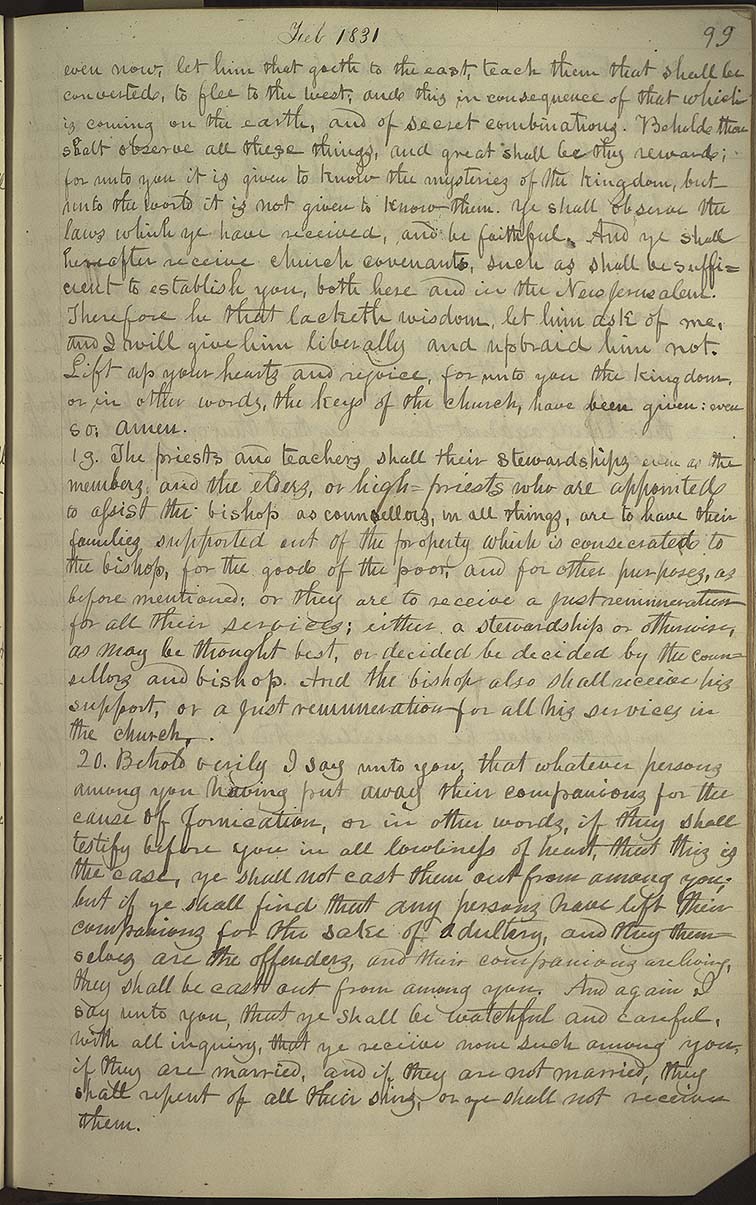 Feb 1831
99
even now, let him that goeth to the east, teach them that shall be
converted, to flee to the west, and this in consequence of that which
is coming on the earth, and of secret combinations. Behold thou
shalt observe all these things, and great shall be thy reward;
for unto you it is given to know the mysteries of the kingdom, but
unto the world it is not given to know them. ye shall observe the
laws which ye have received, and be faithful. And ye shall
hereafter receive church covenants, such as shall be suffi=
cient to establish you, both here and in the New Jerusalem.
Therefore he that lacketh wisdom, let him ask of me,
and I will give him liberally and upbraid him not.
Lift up your hearts and rejoice, for unto you the kingdom,
or in other words, the keys of the church, have been given: even
so, amen.
19. The priests and teachers shall their stewardships even as the
members, and the elders, or high=priests who are appointed
to assist the bishop as counsellors, in all things, are to have their
families supported out of the property which is consecrated to
the bishop, for the good of the poor, and for other purposes, as
before mentioned; or they are to receive a just remuneration
for all their services; either a stewardship or otherwise,
as may be thought best, or decided be decided by the coun=
sellors and bishop. And the bishop also shall receive his
support, or a just remuneration for all his services in
the church.
20. Behold verily I say unto you, that whatever persons
among you having put away their companions for the
cause of fornication, or in other words, if they shall
testify before you in all lowliness of heart, that this is
the case, ye shall not cast them out from among you;
but if ye shall find that any persons have left their
companions for the sake of adultery, and they them=
selves are the offenders, and their companions are living,
they shall be cast out from among you. And again I
say unto you, that ye shall be watchful and careful,
with all inquiry, that ye receive none such among you,
if they are married, and if they are not married, they
shall repent of all their sins, or ye shall not receive
them.